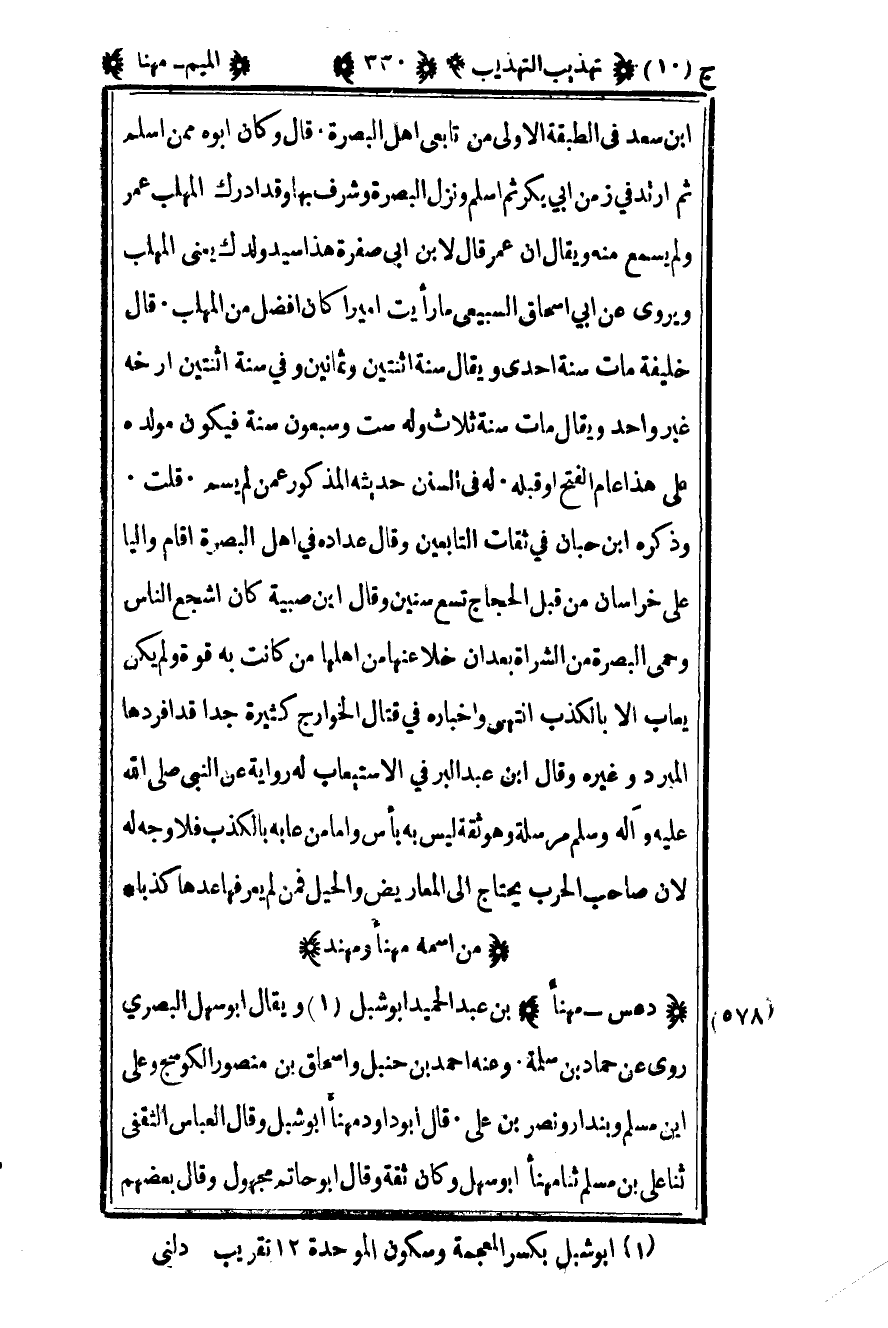 ج (١٠) ﴿ تهذيب التهذيب ﴾ ﴿ ٣٣٠ ﴾ ﴿ الميم ـ مهنا ﴾
ابن سعد فى الطبقة الاولى من تابعى اهل البصرة ٠ قال وكان ابوه ممن اسلم
ثم ارتد في زمن ابي بكر ثم اسلم ونزل البصرة وشرف بها وقد ادرك المهلب عمر
ولم يسمع منه ويقال ان عمر قال لابن ابى صفرة هذا سيد ولدك يعنى المهلب
ويروى عن ابي اسحاق السبيعى ما رأيت اميرا كان افضل من المهلب ٠ قال
خليفة مات سنة احدى ويقال سنة اثنتين وثمانين و في سنة اثنتين ارخه
غير واحد ويقال مات سنة ثلاث وله ست وسبعون سنة فيكون مولده
على هذا عام الفتح او قبله ٠ له فى السنن حديثه المذكور عمن لم يسم ٠ قلت ٠
وذكره ابن حبان في ثقات التابعين وقال عداده في اهل البصرة اقام واليا
على خراسان من قبل الحجاج تسع سنين وقال ابن صبية كان اشجع الناس
وحمى البصرة من الشراة بعد ان خلا عنها من اهلها من كانت به قوة ولم يكن
يعاب الا بالكذب انتهى واخباره في قتال الخوارج كثيرة جدا قد افردها
المبرد و غيره وقال ابن عبد البر في الاستيعاب له رواية عن النبى صلى الله
عليه و آله وسلم مرسلة وهو ثقة ليس به بأس واما من عابه بالكذب فلا وجه له
لان صاحب الحرب يحتاج الى المعاريض والحيل فمن لم يعرفها عدها كذبا *
﴿ من اسمه مهنأ ومهند ﴾
(٥٧٨) ﴿ دهس ـ مهنأ ﴾ بن عبد الحميد ابو شبل (١) و يقال ابو سهل البصري
روى عن حماد بن سلمة ٠ وعنه احمد بن حنبل واسحاق بن منصور الكوسج وعلى
ابن مسلم وبندار ونصر بن على ٠ قال أبو داود مهنأ ابو شبل وقال العباس الثقفى
ثنا على بن مسلم ثنا مهنأ ابو سهل وكان ثقة وقال ابو حاتم مجهول وقال بعضهم
(١) ابو شبل بكسر المعجمة وسكون الموحدة ١٢ تقريب